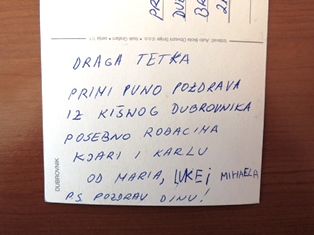 PR
DU
BR
2
DRAGA TETKA
PRIMI PUNO POZDRAVA
IZ KIŠNOG DUBROVNIKA
POSEBNO ROĐACIMA
KJARI I KARLU
OD MARIA, LUKE I MIHAELA
P.S POZDRAV DINU!
DUBROVNIK